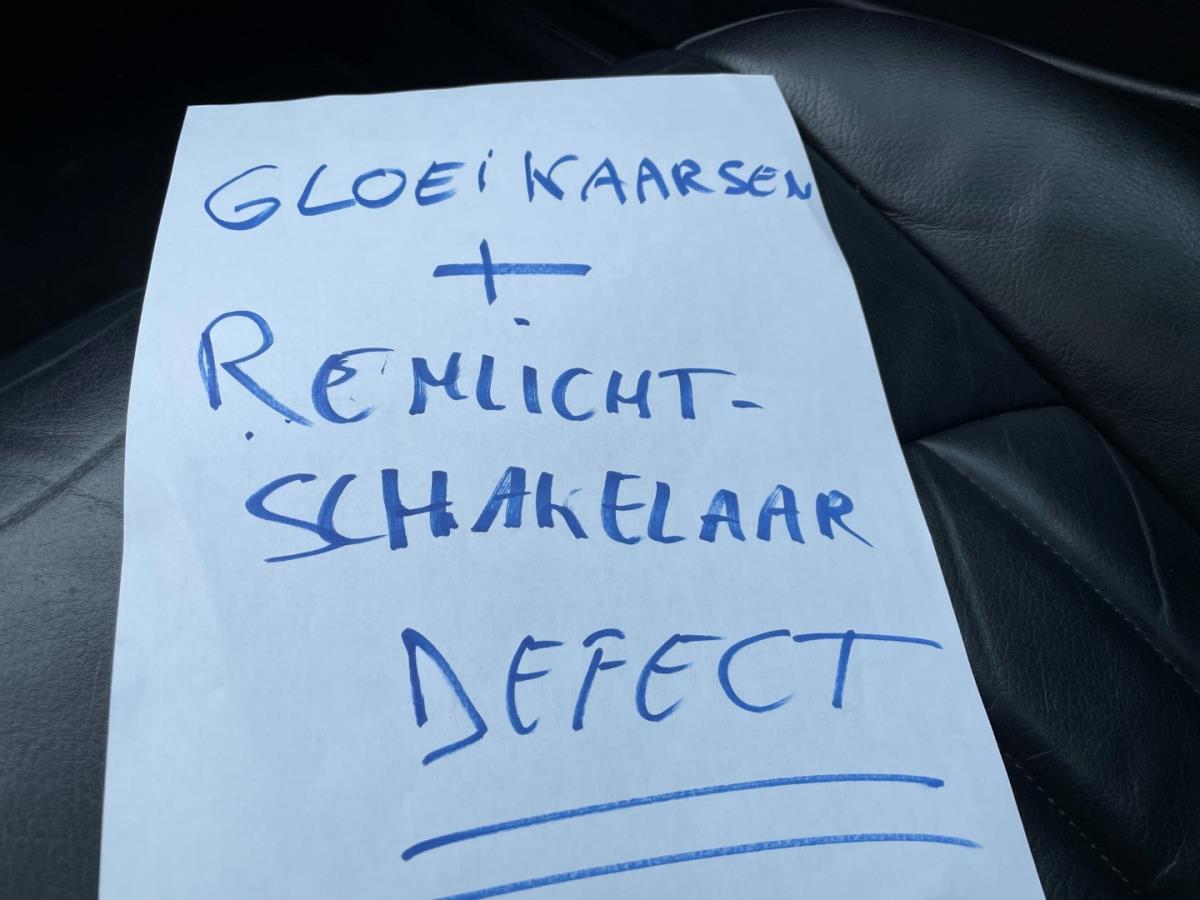 GLOEiKAARSEN
+
REMLICHT-
SCHAKELAAR
DEFECT